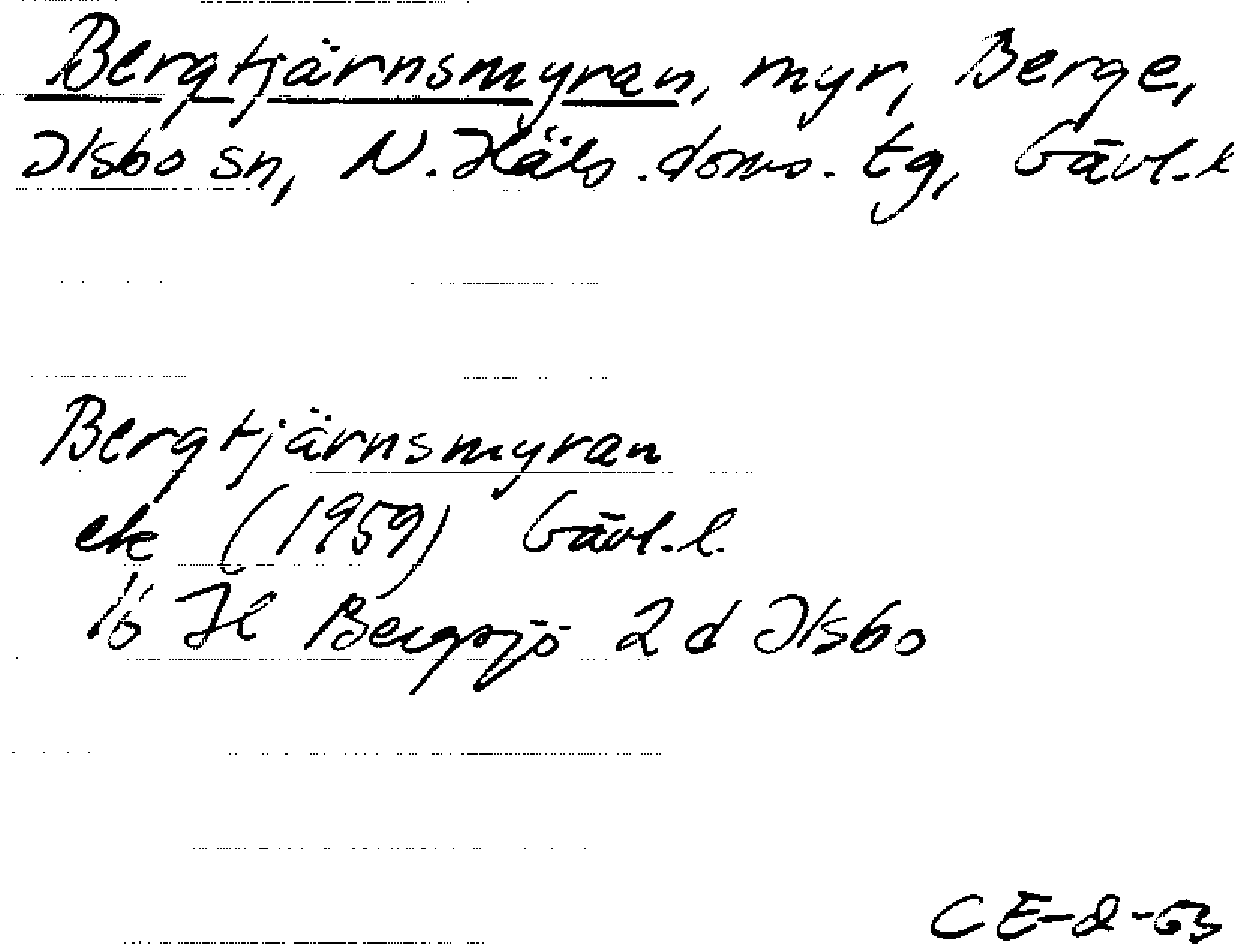 Bergtjärnsmyran, myr, Berge,
Ilsbo sn, N. Häls. doms. tg, Gävl. l
Bergtjärnsmyran
ek (1959) Gävl. l.
16 H Bergsjö 2 d Ilsbo
CE-d-63